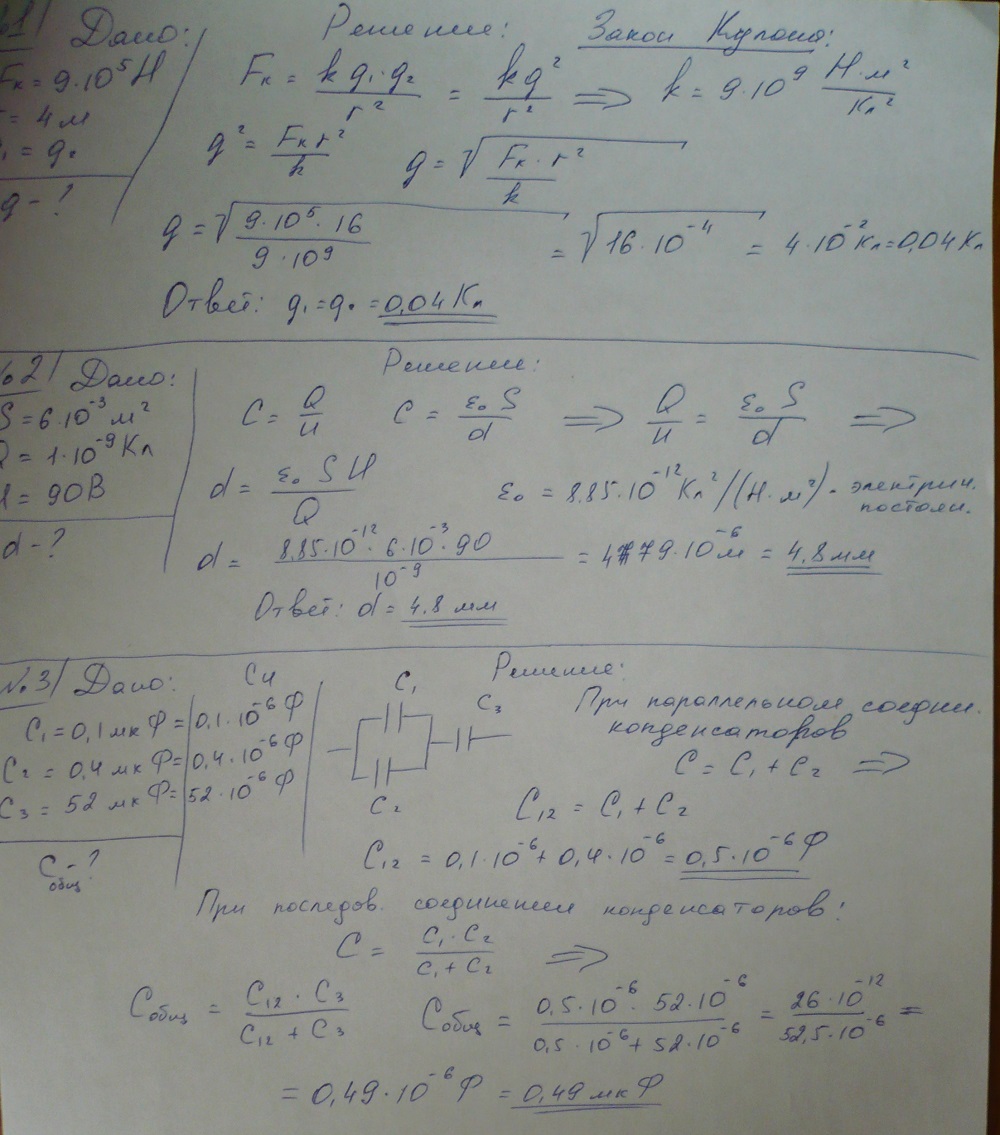 №1 Дано: Решение: Закон Кулона:
Fк = 9·10⁵ Н
r = 4 м
q₁ = q₂
q - ?
Fк = k q₁·q₂ / r² = kq² / r² => k = 9·10⁹ Н·м² / Кл²
q² = Fк r² / k q = √(Fк · r² / k)
q = √(9·10⁵·16 / 9·10⁹) = √(16·10⁻⁴) = 4·10⁻² Кл = 0,04 Кл
Ответ: q₁ = q₂ = 0,04 Кл
№2 Дано: Решение:
S = 6·10⁻³ м²
Q = 1·10⁻⁹ Кл
U = 90В
d - ?
C = Q / U C = ε₀ S / d => Q / U = ε₀ S / d =>
d = ε₀ S U / Q ε₀ = 8.85·10⁻¹² Кл²/(Н·м²) - электрич.
постоян.
d = 8,85·10⁻¹²·6·10⁻³·90 / 10⁻⁹ = 4779·10⁻⁶ м = 4,8 мм
Ответ: d = 4,8 мм
№3 Дано: Си Решение:
C₁ = 0,1 мк Ф = 0,1·10⁻⁶ Ф
C₂ = 0,4 мк Ф = 0,4·10⁻⁶ Ф
C₃ = 52 мк Ф = 52·10⁻⁶ Ф
Cобщ - ?
C₁
C₃
C₂
При параллельном соедин.
конденсаторов
C = C₁ + C₂ =>
C₁₂ = C₁ + C₂
C₁₂ = 0,1·10⁻⁶ + 0,4·10⁻⁶ = 0,5·10⁻⁶ Ф
При последов. соединении конденсаторов:
C = C₁·C₂ / C₁ + C₂ =>
Cобщ = C₁₂ · C₃ / C₁₂ + C₃ Cобщ = 0,5·10⁻⁶ · 52·10⁻⁶ / 0,5·10⁻⁶ + 52·10⁻⁶ = 26·10⁻¹² / 52,5·10⁻⁶ =
= 0,49·10⁻⁶ Ф = 0,49 мк Ф